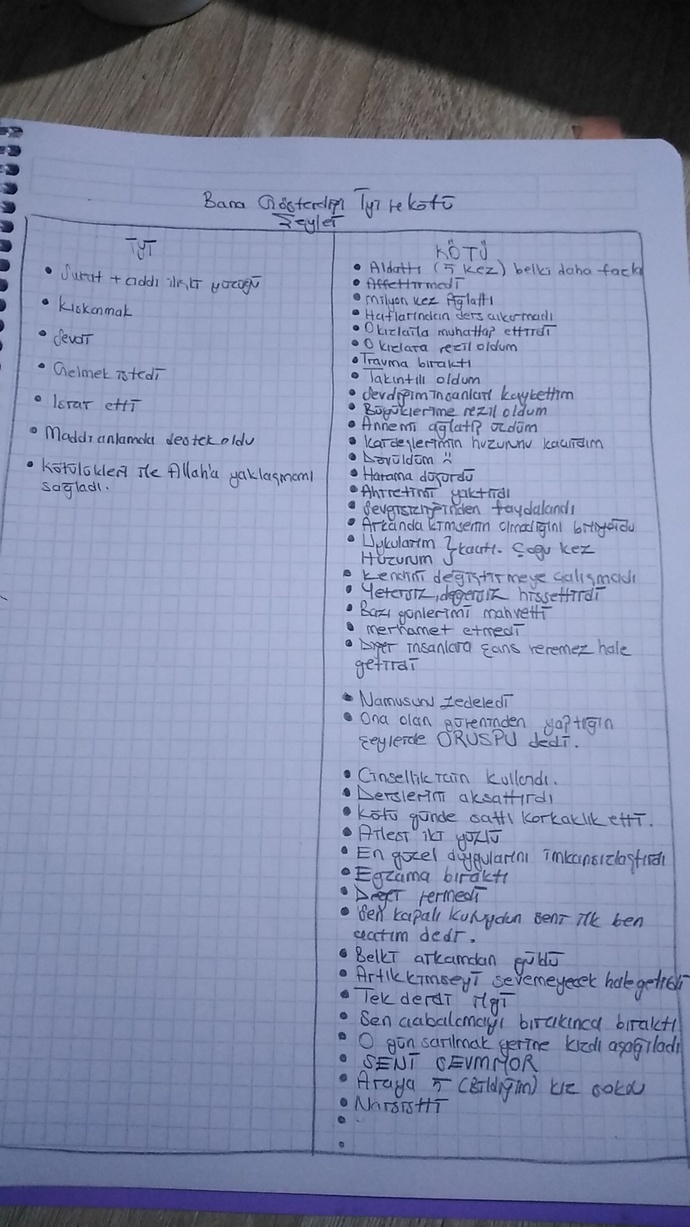 Bana Gösterdiği İyi ve kötü
Şeyler
İYİ
• Surat + ciddi ilişki yüzüğü
• Kıskanmak
• Sevdi
• Gelmek istedi
• Israr etti
• Maddi anlamda destek oldu
• Kötülükleri ile Allah'a yaklaşmamı
sağladı.
KÖTÜ
• Aldattı (5 kez) belki daha fazla
• Affettirmedi
• milyon kez Ağlattı
• Hatlarından ders çıkarmadı
• O kızlarla muhattap ettirdi
• O kızlara rezil oldum
• Travma bıraktı
• Takıntılı oldum
• Sevdiğim insanları kaybettim
• Büyüklerime rezil oldum
• Annemi ağlatıp üzdüm
• Kardeşlerimin huzurunu kaçırdım
• Dövüldüm
• Harama düşürdü
• Ahiretimi yaktırdı
• Sevgisizliğinden faydalandı
• Arkanda kimsenin olmadığını biliyordu
• Uykularım } kaçtı. Çoğu kez
Huzurum
• Kendini değiştirmeye çalışmadı
• Yetersiz, değersiz hissettirdi
• Bazı günlerimi mahvetti
• merhamet etmedi
• Diğer insanlara şans veremez hale
getirdi
• Namusunu zedeledi
• Ona olan güveninden yaptığın
şeylerde ORUSPU dedi.
• Cinsellik için kullandı.
• Derslerini aksattırdı
• Kötü günde sattı korkaklık etti.
• Ailesi iki yüzlü
• En güzel duygularını imkansızlaştırdı
• Egzama bıraktı
• Değer vermedi
• Sen kapalı kutuydun seni ilk ben
açtım dedi.
• Belki arkamdan güldü
• Artık kimseyi sevemeyecek hale getirdi
• Tek derdi ilgi
• Sen çabalamayı bırakınca bıraktı
• O gün sarılmak yerine kızdı aşağıladı
• SENİ SEVMİYOR
• Araya 5 (Bildiğim) kız soktu
• Narsistti